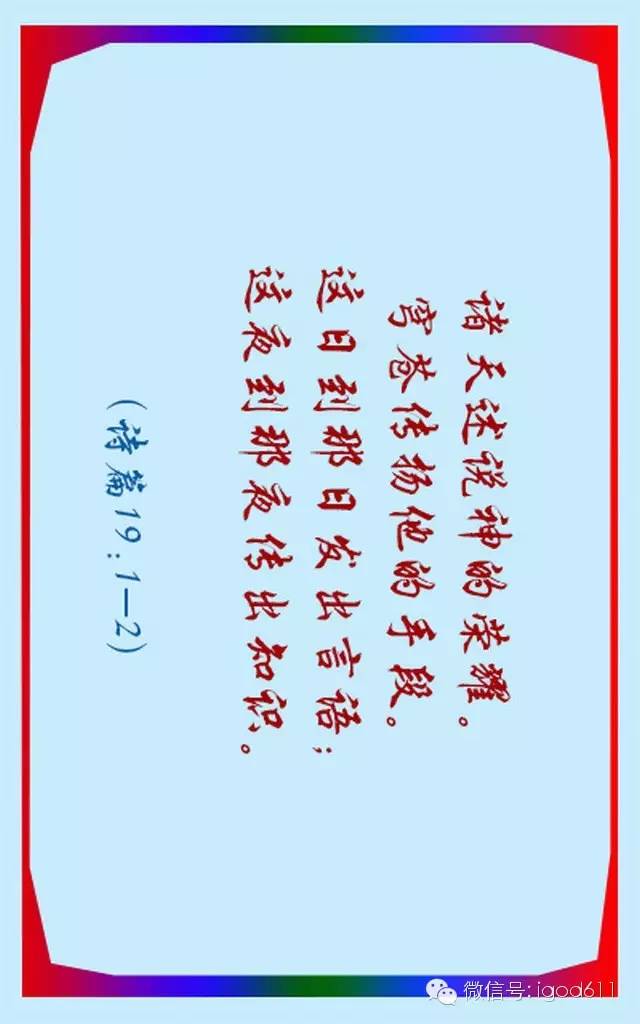 诸天述说神的荣耀。
穹苍传扬他的手段。
这日到那日发出言语；
这夜到那夜传出知识。
（诗篇19：1—2）
微信号: igod611